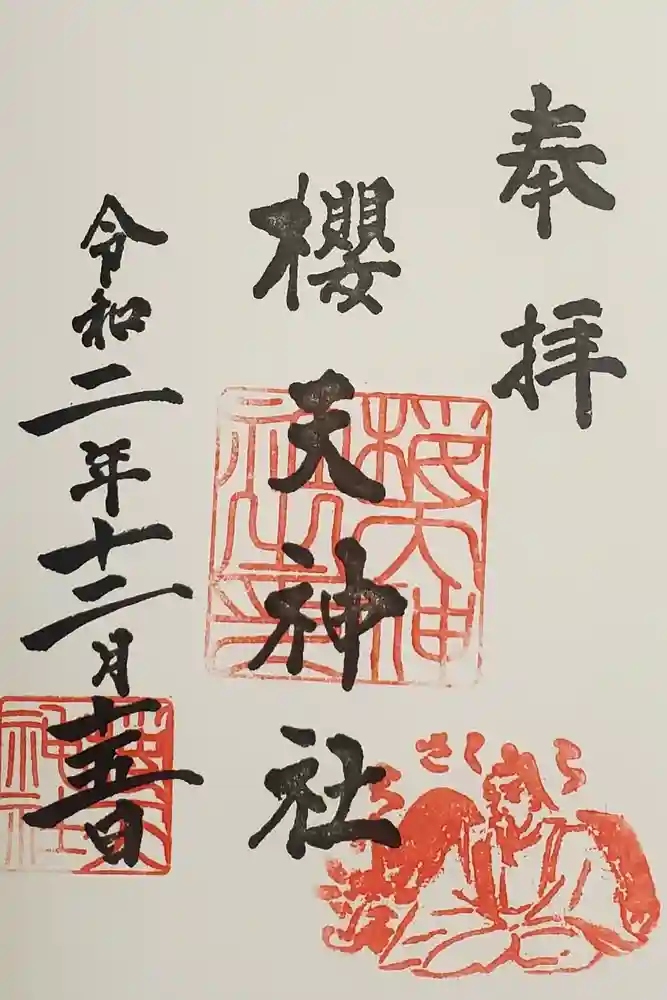 奉拝
櫻天神社
令和二年十二月十五日
桜天神社之印
さくら